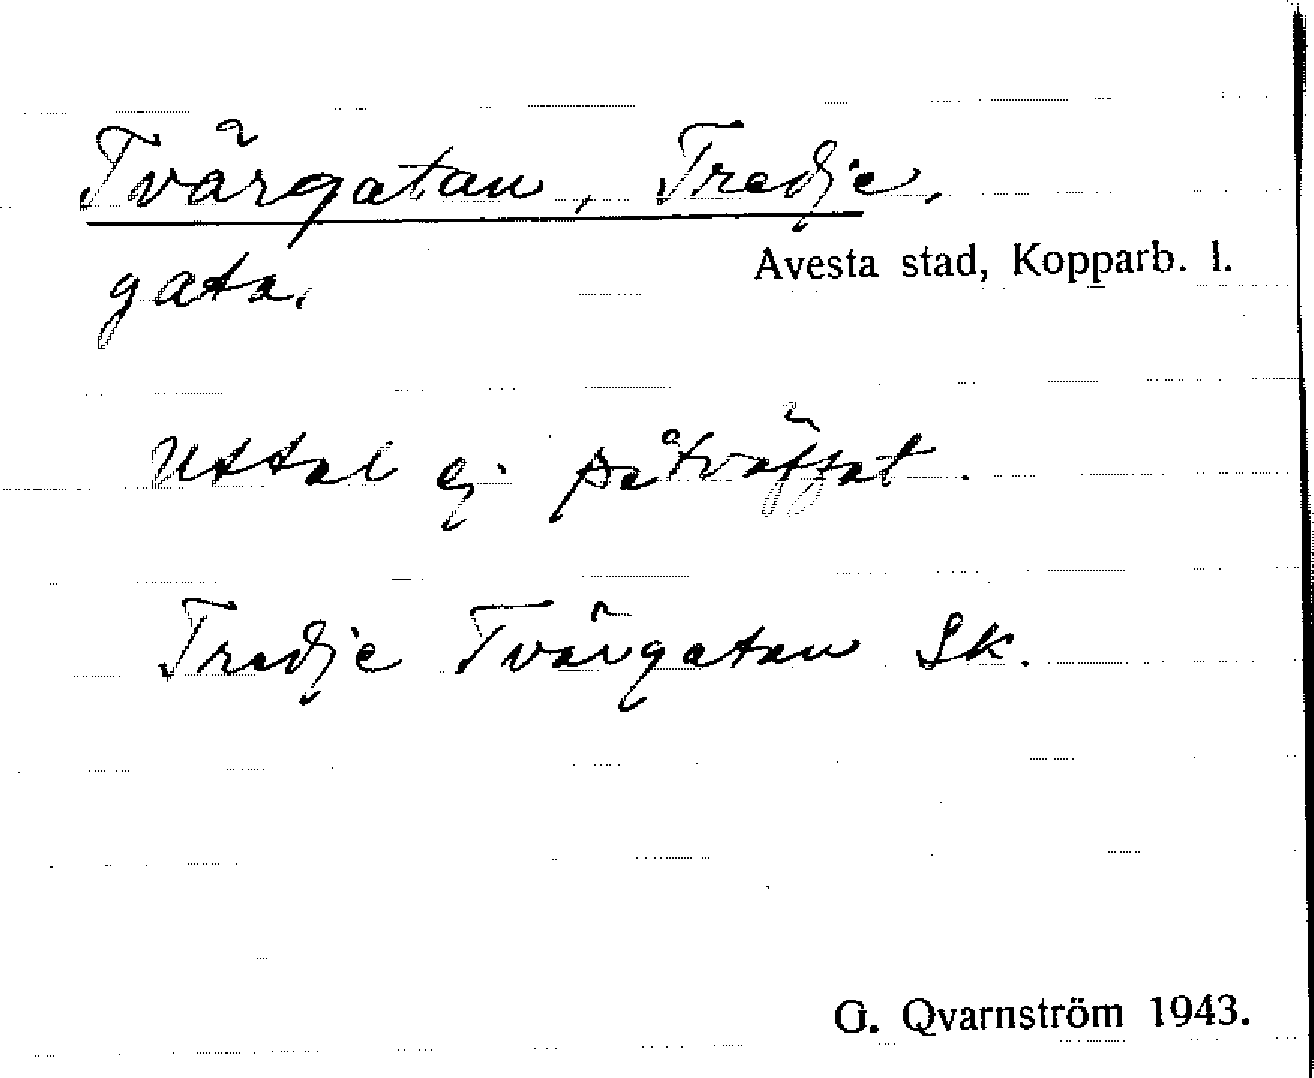 Tvärgatan, Tredje.
Avesta stad, Kopparb. l.
gata.
Uttal ej påträffat.
Tredje Tvärgatan Sk.
G. Qvarnström 1943.